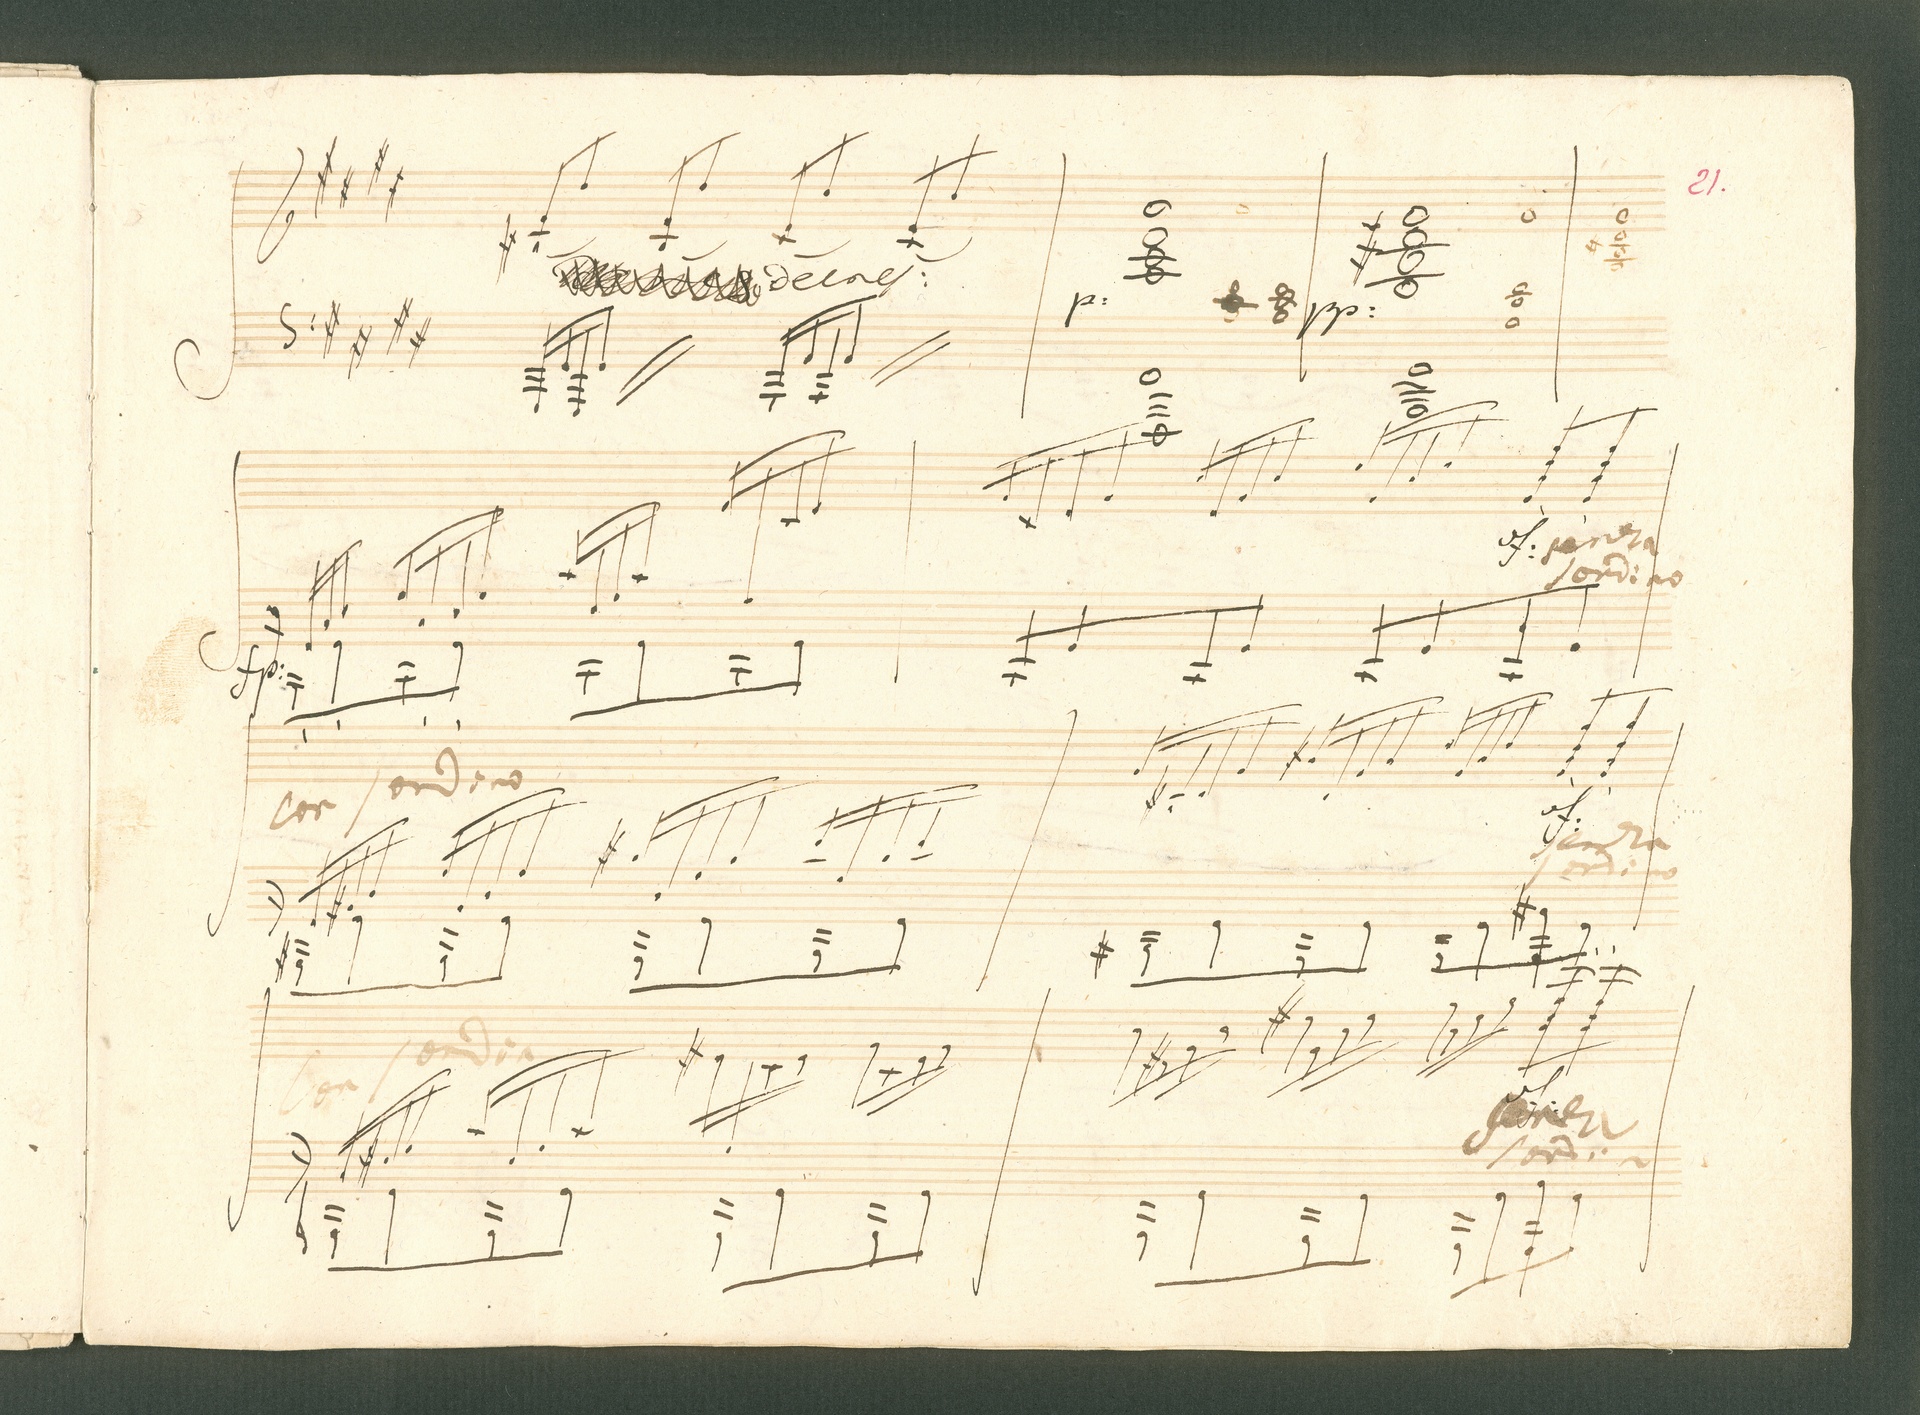 21.
decresc:
p:
pp:
sf: senza
sordino
fp:
con sordino
sf:
senza
sordino
con sordin
sf:
senza
sordin